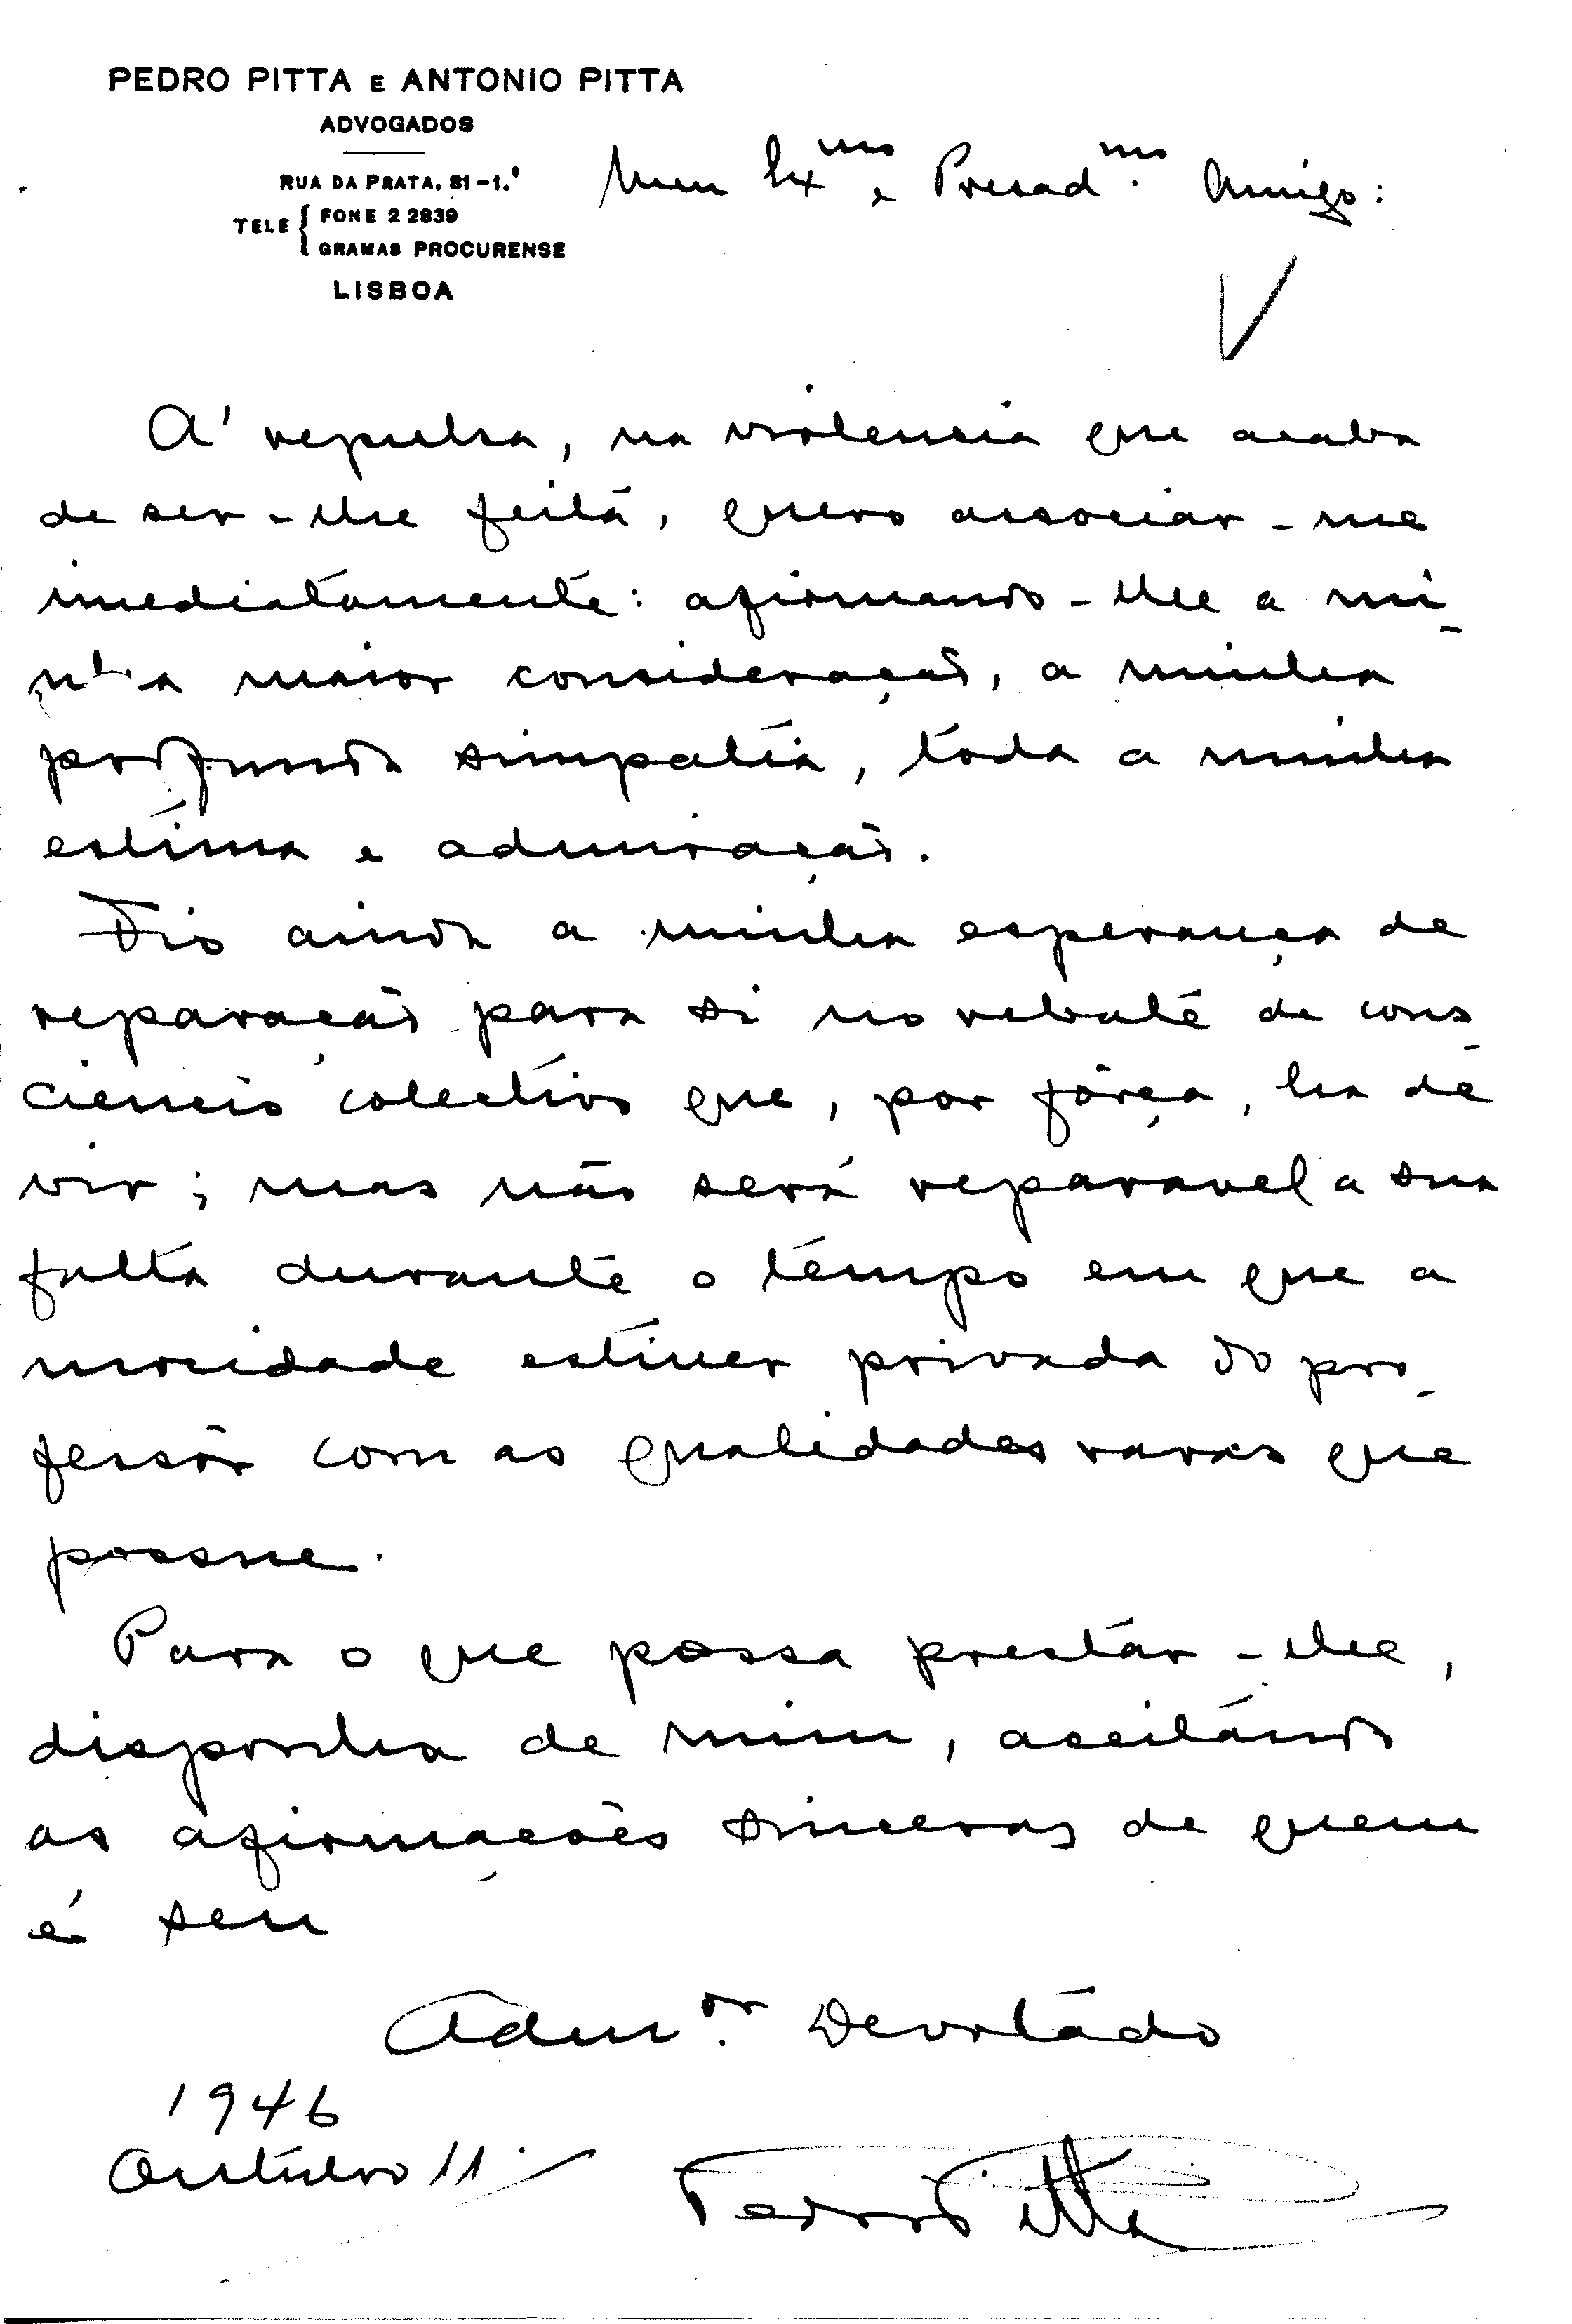 PEDRO PITTA E ANTONIO PITTA
ADVOGADOS
RUA DA PRATA, 81-1.º
TELE { FONE 2 2839
GRAMAS PROCURENSE
LISBOA
Meu Exmo e Presadmo. Amigo:
A' repulsa, na violencia que acaba
de ser-lhe feita, quero associar-me
imediatamente: afirmando-lhe a mi-
nha maior consideração, a minha
profunda simpatia, toda a minha
estima e admiração.
Fio ainda a minha esperança de
reparação para si no rebate de cons-
ciencia colectivo que, por fôrça, ha de
vir; mas não será reparavel a sua
falta durante o tempo em que a
mocidade estiver privada do pro-
fessôr com as qualidades raras que
possue.
Para o que possa prestar-lhe,
disponha de mim, aceitando
as afirmações sinceras de quem
é seu
Admor. Devotado
1946
Outubro 11
Pedro Pitta